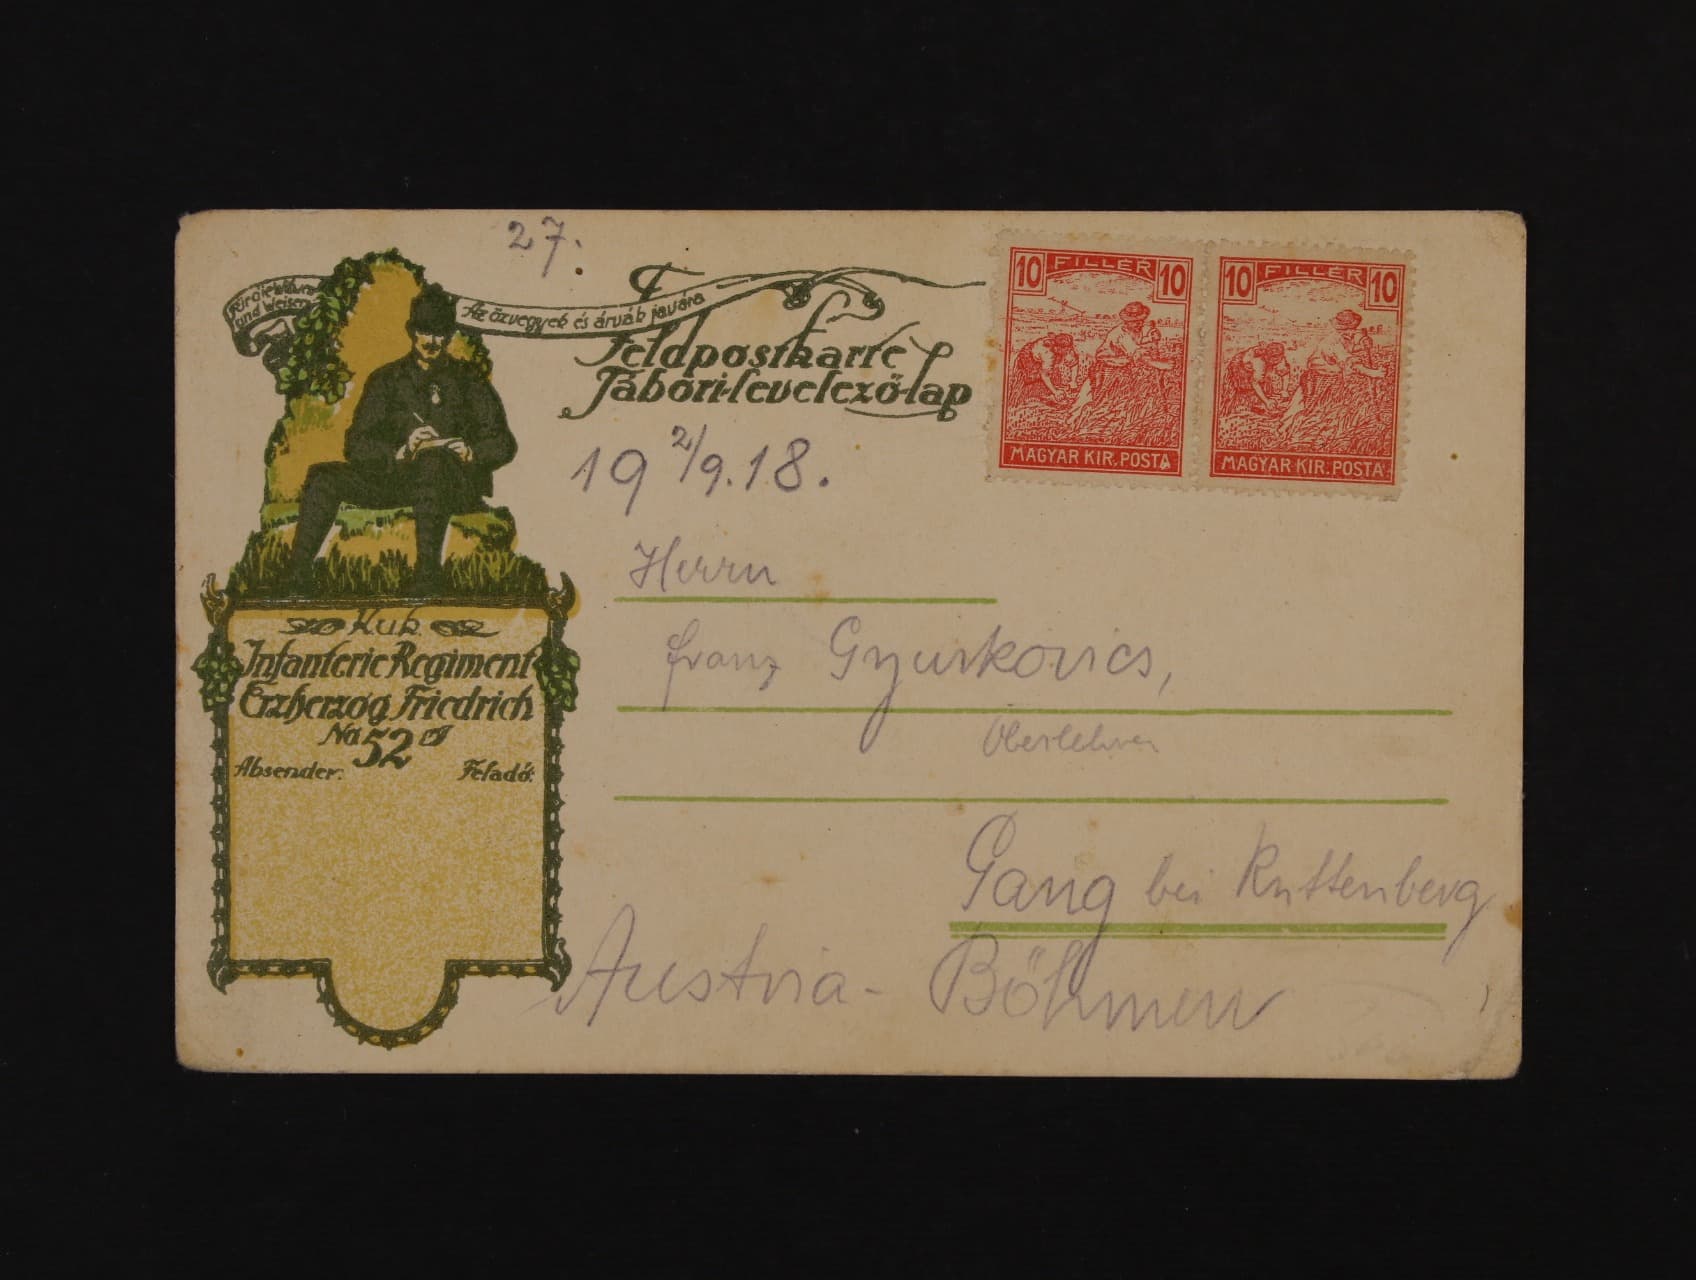 27.
Für die Witwen
und Weisen
Az özvegyek és árvák javára
Feldpostkarte
Tábori-levelező-lap
10 FILLÉR 10
MAGYAR KIR. POSTA
10 FILLÉR 10
MAGYAR KIR. POSTA
19 2/9. 18.
Herrn
Franz Gyurkovics,
Oberlehrer
Gang bei Kuttenberg
Austria - Böhmen
K.u.k.
Infanterie Regiment
Erzherzog Friedrich
No 52
Absender: Feladó: